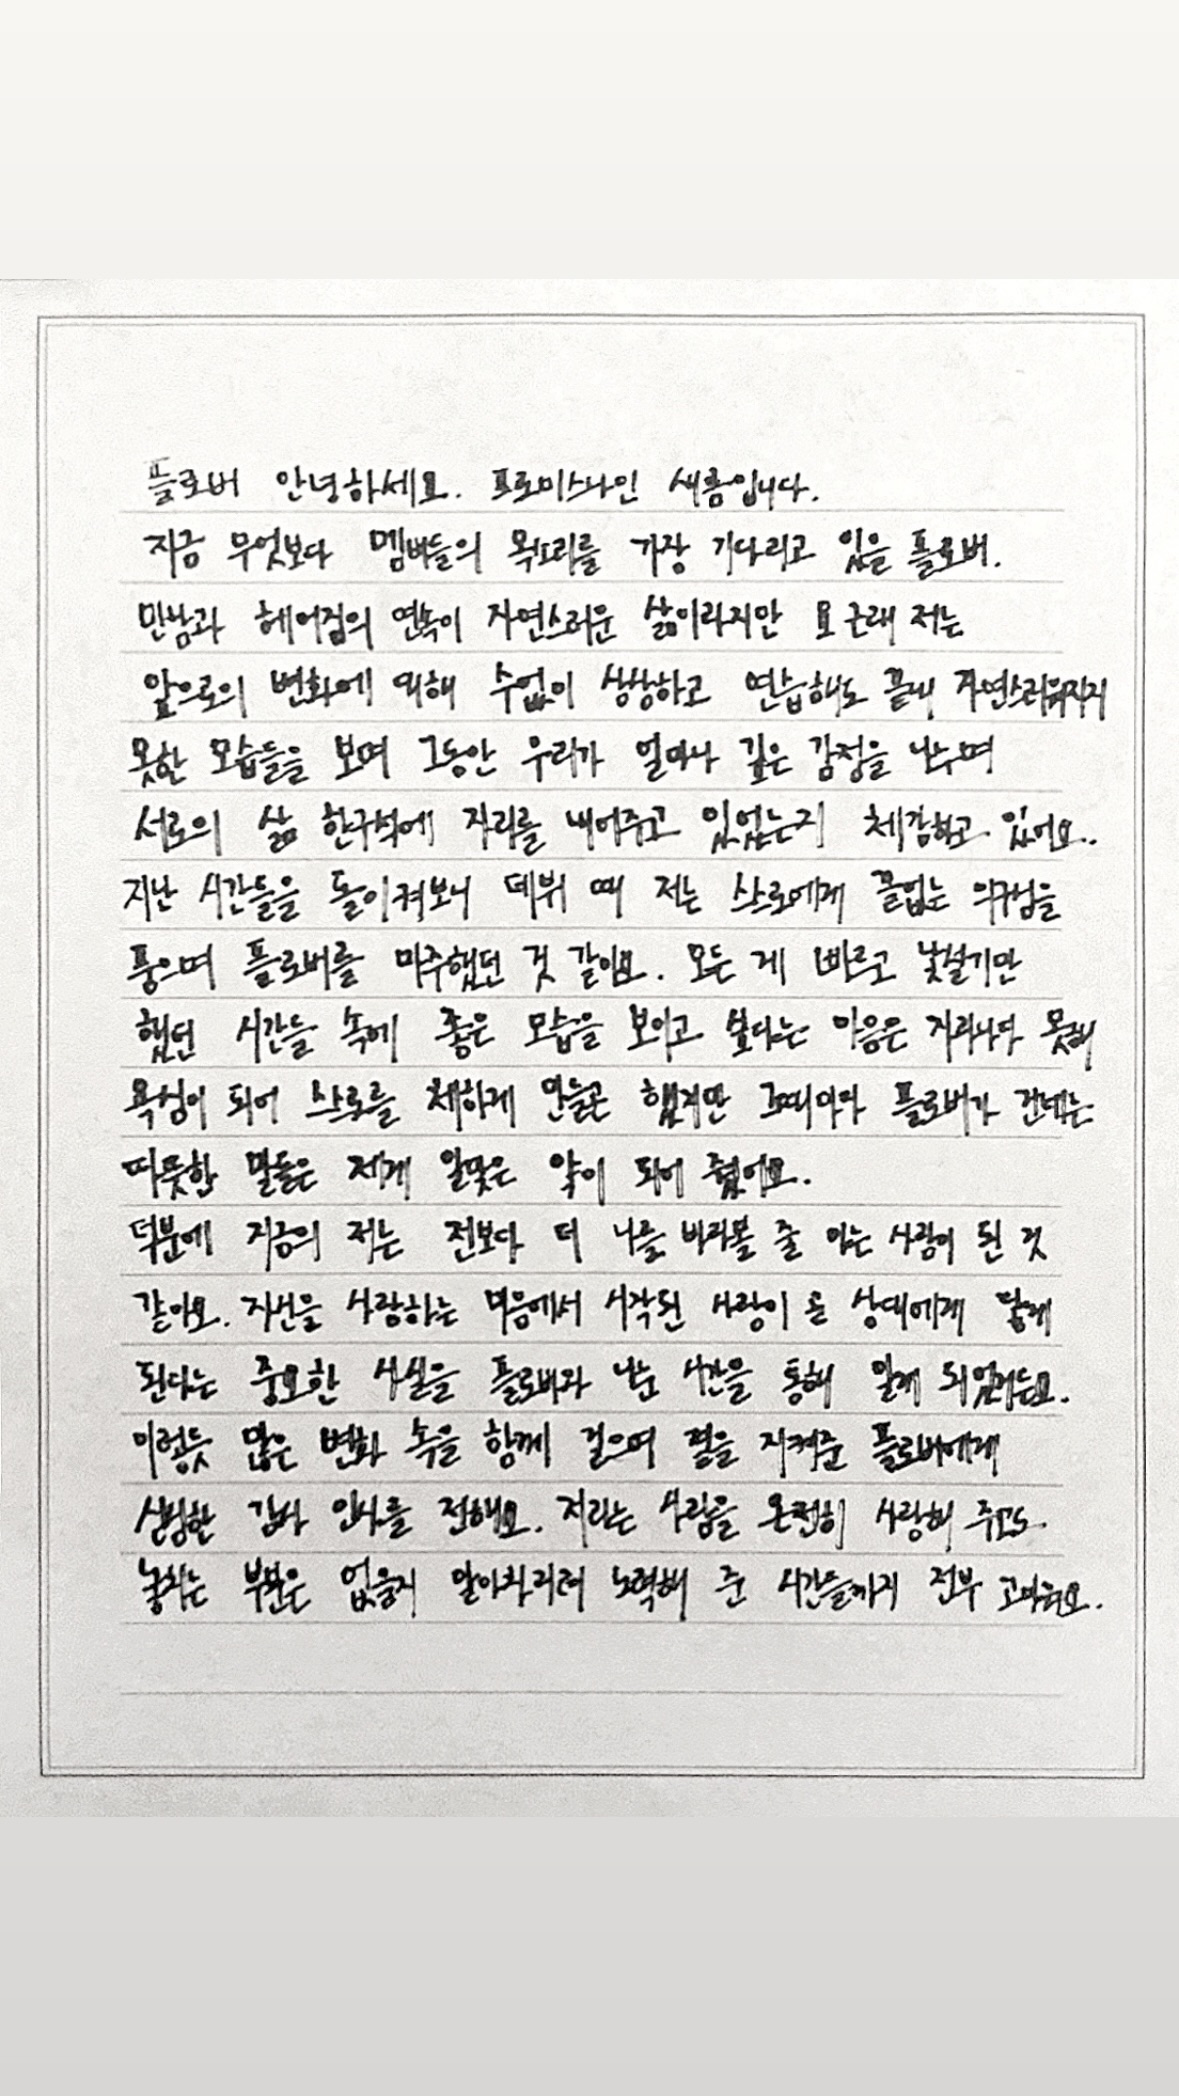 플로버 안녕하세요. 프로미스나인 새롬입니다.
지금 무엇보다 멤버들의 목소리를 가장 기다리고 있을 플로버.
만남과 헤어짐의 연속이 자연스러운 삶이라지만 요 근래 저는
앞으로의 변화에 대해 수없이 상상하고 연습해도 끝내 자연스러워지지
못한 모습들을 보며 그동안 우리가 얼마나 깊은 감정을 나누며
서로의 삶 한구석에 자리를 내어주고 있었는지 체감하고 있어요.
지난 시간들을 돌이켜보니 데뷔 때 저는 스스로에게 끝없는 의구심을
품으며 플로버를 마주했던 것 같아요. 모든 게 빠르고 낯설기만
했던 시간들 속에 좋은 모습을 보이고 싶다는 마음은 지나치다 못해
욕심이 되어 스스로를 체하게 만들곤 했지만 그때마다 플로버가 건네는
따뜻한 말들은 제게 알맞은 약이 되어 줬어요.
덕분에 지금의 저는 전보다 더 나를 바라볼 줄 아는 사람이 된 것
같아요. 자신을 사랑하는 마음에서 시작된 사랑이 곧 상대에게 닿게
된다는 중요한 사실을 플로버와 나눈 시간을 통해 알게 되었거든요.
이렇듯 많은 변화 속을 함께 걸으며 절 지켜준 플로버에게
심심한 감사 인사를 전해요. 저라는 사람을 온전히 사랑해 주고도
놓치는 부분은 없을지 알아차리려 노력해 준 시간들까지 전부 고마워요.